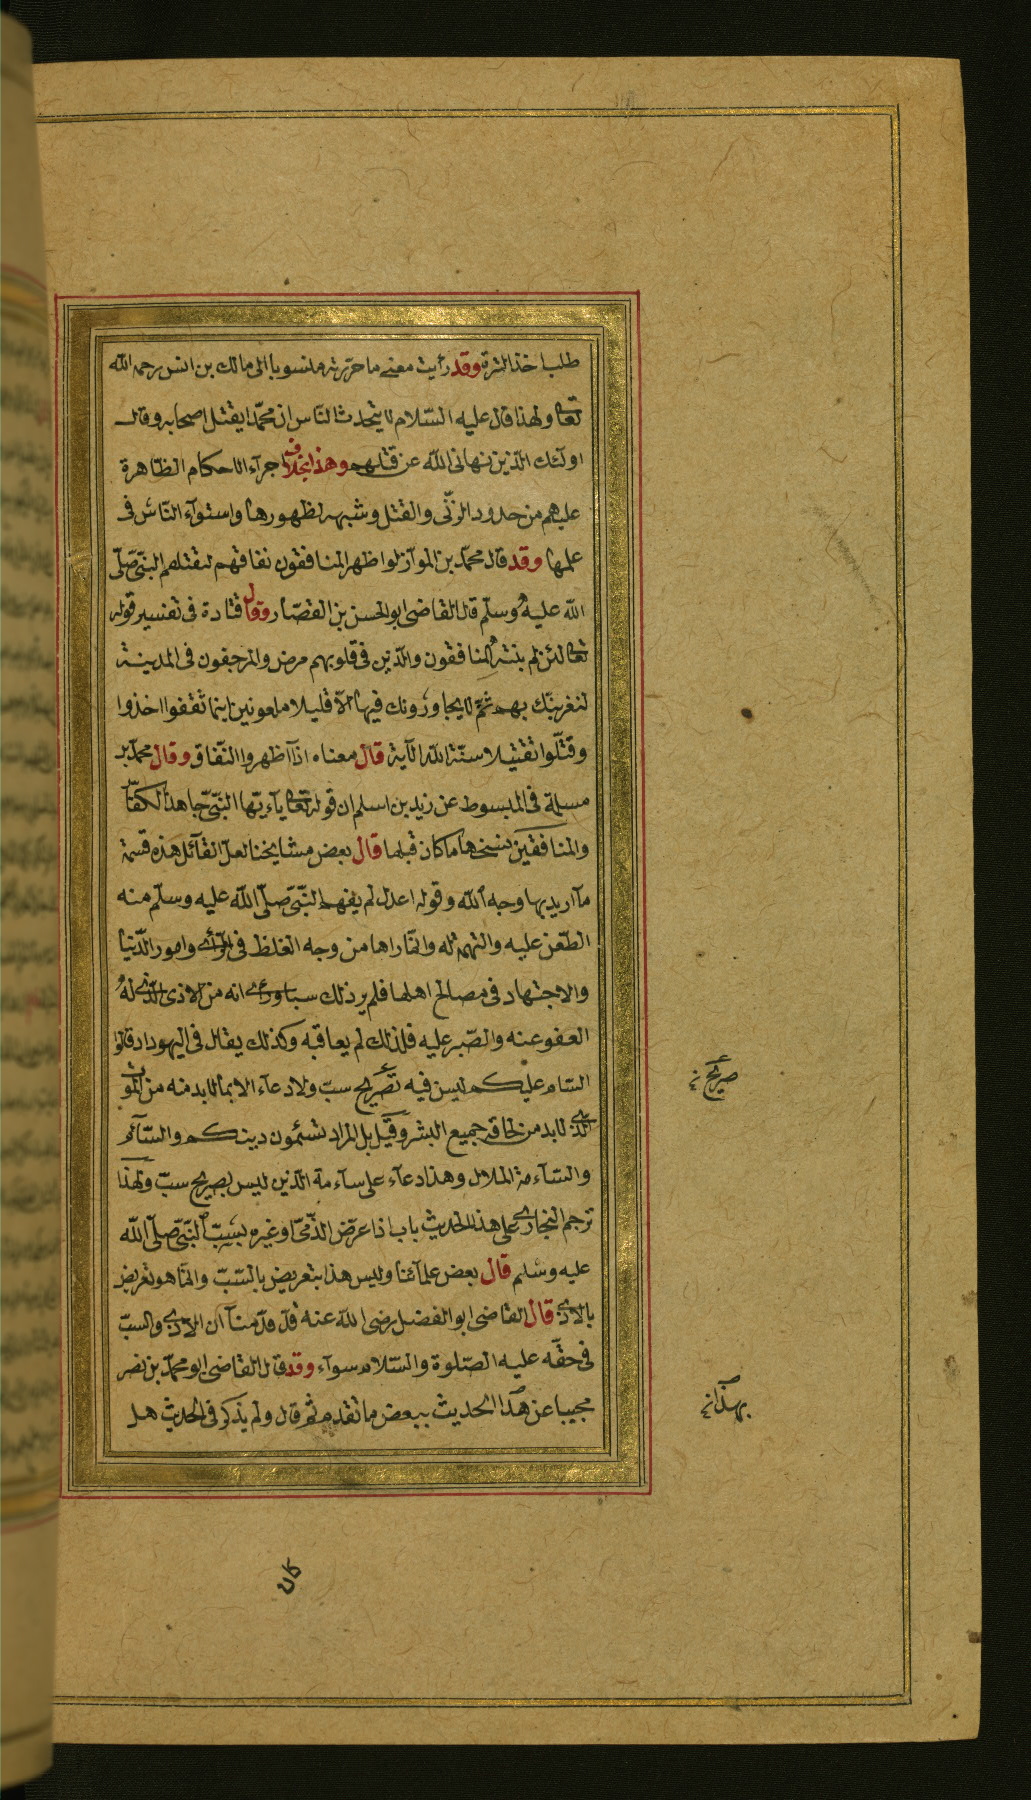 طلب اخذ الترة وقد رأيت معنى ما حررته منسوبا الى مالك بن انس رحمه الله
تعالى ولهذا قال عليه السّلام لا يتحدث النّاس ان محمّدا يقتل اصحابه وقال
اولئك الذين نهانى الله عن قتلهم وهذا بخلاف اجرآء الاحكام الظاهرة
عليهم من حدود الزنّى والقتل وشبهه لظهورها واستوآء النّاس فى
علمها وقد قال محمّد بن الموّاز لو اظهر المنافقون نفاقهم لقتلهم النبّى صلّى
الله عليه وسلّم قال القاضى ابو الحسن بن القصّار وقال قتادة فى تفسير قوله
تعالى لئن لم ينته المنافقون والذين فى قلوبهم مرض والمرجفون فى المدينة
لنغرينّك بهم ثمّ لا يجاورونك فيها الّا قليلا ملعونين اينما ثقفوا اخذوا
وقتّلوا تقتيلا سنّة الله الآية قال معناه اذا اظهروا النّفاق وقال محمّد بن
مسلمة فى المبسوط عن زيد بن اسلم ان قوله تعالى يآءيّها النّبىّ جاهد الكفّار
والمنافقين نسخها ما كان قبلها قال بعض مشايخنا لعلّ القآئل هذه قسمة
مآ اريد بها وجه الله وقوله اعدل لم يفهم النّبىّ صلّى الله عليه وسلّم منه
الطّعن عليه والتهمة له وانّما راها من وجه الغلط فى الرّأى وامور الدّنيا
والاجتهاد فى مصالح اهلها فلم ير ذلك سبا ورأى انه من الاذى الّذى له
العفو عنه والصّبر عليه فلذلك لم يعاقبه وكذلك يقال فى اليهود اذ قالوا
السّام عليكم ليس فيه تصريح سبّ ولا دعآء الا بما لا بد منه من الموت
الّذى لا بد من لحاقه جميع البشر وقيل بل المراد تسئمون دينكم والسّآم
والسّآءمة الملال وهذا دعآء على سآءمة الدّين ليس بصريح سبّ ولهذا
ترجم البخارى على هذا الحديث باب اذا عرّض الذّمىّ او غيره بسبّ النّبىّ صلّى الله
عليه وسلم قال بعض علمآئنا وليس هذا بتعريض بالسّبّ وانّما هو تعريض
بالاذى قال القاضى ابو الفضل رضى الله عنه قد قدّمنآ ان الاذى والسبّ
فى حقّه عليه الصّلوة والسّلام سوآء وقد قال القاضى ابو محمّد بن نصر
مجيبا عن هذا الحديث ببعض ما تقدم ثم قال ولم يذكر فى الحديث هل
صريح
بهذا